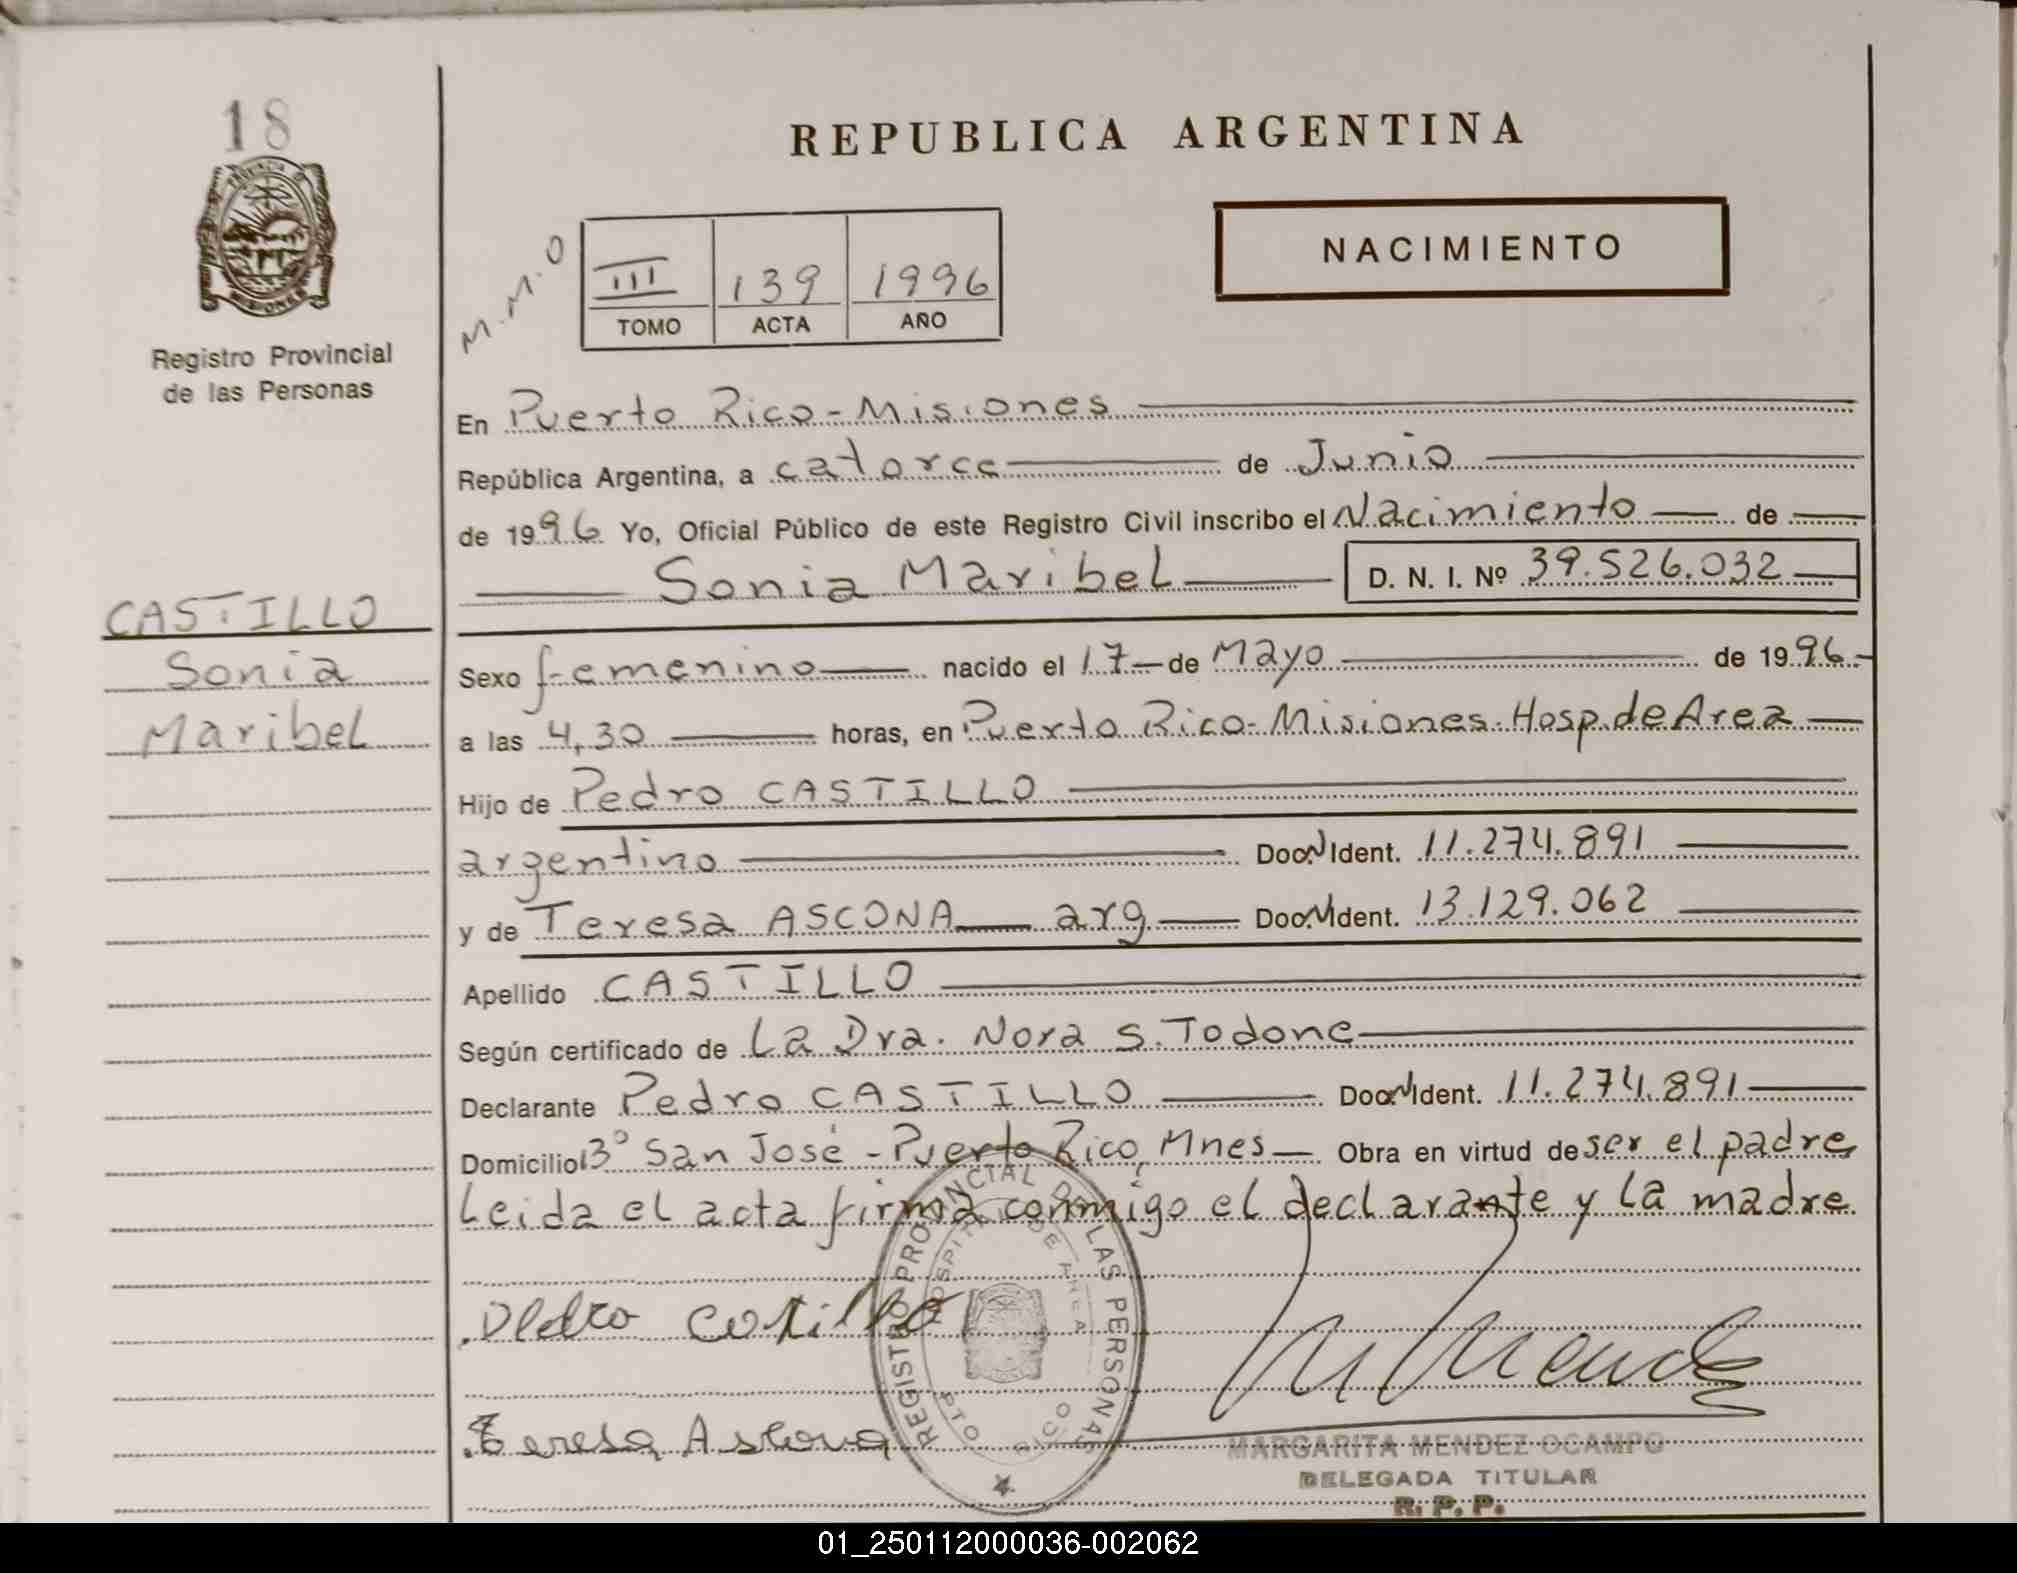 18
REPUBLICA ARGENTINA
NACIMIENTO
M.M.O
III 139 1996
TOMO ACTA AÑO
Registro Provincial
de las Personas
En Puerto Rico - Misiones
República Argentina, a catorce de Junio
de 1996 Yo, Oficial Público de este Registro Civil inscribo el Nacimiento de
Sonia Maribel D. N. I. Nº 39.526.032
CASTILLO
Sonia
Maribel
Sexo femenino nacido el 17 de Mayo de 1996
a las 4,30 horas, en Puerto Rico - Misiones - Hosp. de Area
Hijo de Pedro CASTILLO
argentino Doc. Ident. 11.274.891
y de Teresa ASCONA arg Doc. Ident. 13.129.062
Apellido CASTILLO
Según certificado de La Dra. Nora S. Todone
Declarante Pedro CASTILLO Doc. Ident. 11.274.891
Domicilio 3º San José - Puerto Rico, Mnes Obra en virtud de ser el padre
Leida el acta firma conmigo el declarante y la madre.
REGISTRO PROVINCIAL DE LAS PERSONAS
HOSPITAL DE AREA
PTO RICO
Teresa Ascona
MARGARITA MENDEZ OCAMPO
DELEGADA TITULAR
R. P. P.
01_250112000036-002062